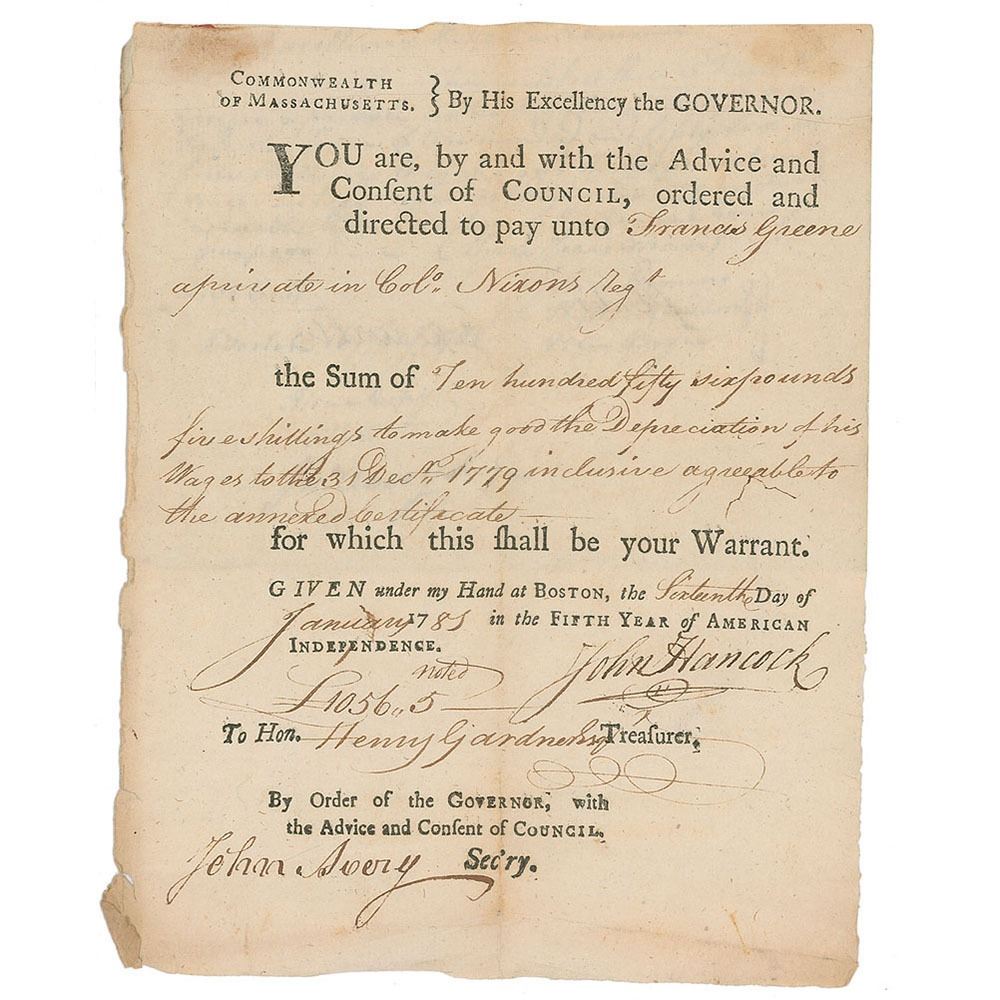 COMMONWEALTH
OF MASSACHUSETTS. } By His Excellency the GOVERNOR.
YOU are, by and with the Advice and
Conſent of COUNCIL, ordered and
directed to pay unto Francis Greene
a private in Colo. Nixons Regt
the Sum of Ten hundred fifty six pounds
five shillings to make good the Depreciation of his
Wages to the 31 Decr. 1779 inclusive agreeable to
the annexed Certificate
for which this ſhall be your Warrant.
GIVEN under my Hand at BOSTON, the Sixteenth Day of
January 1781 in the FIFTH YEAR of AMERICAN
INDEPENDENCE.
John Hancock
noted
£1056,,5
To Hon. Henry Gardner Esq Treaſurer.
By Order of the GOVERNOR, with
the Advice and Conſent of COUNCIL.
John Avery Sec'ry.